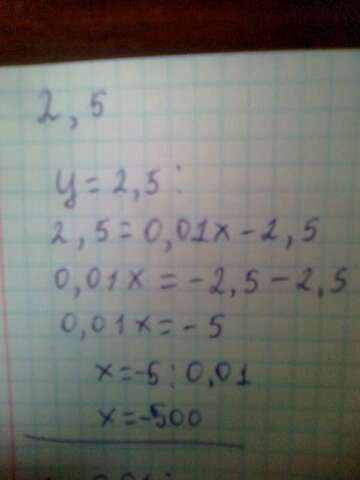 2,5
y = 2,5:
2,5 = 0,01x - 2,5
0,01x = -2,5 - 2,5
0,01x = - 5
x = -5 : 0,01
x = -500